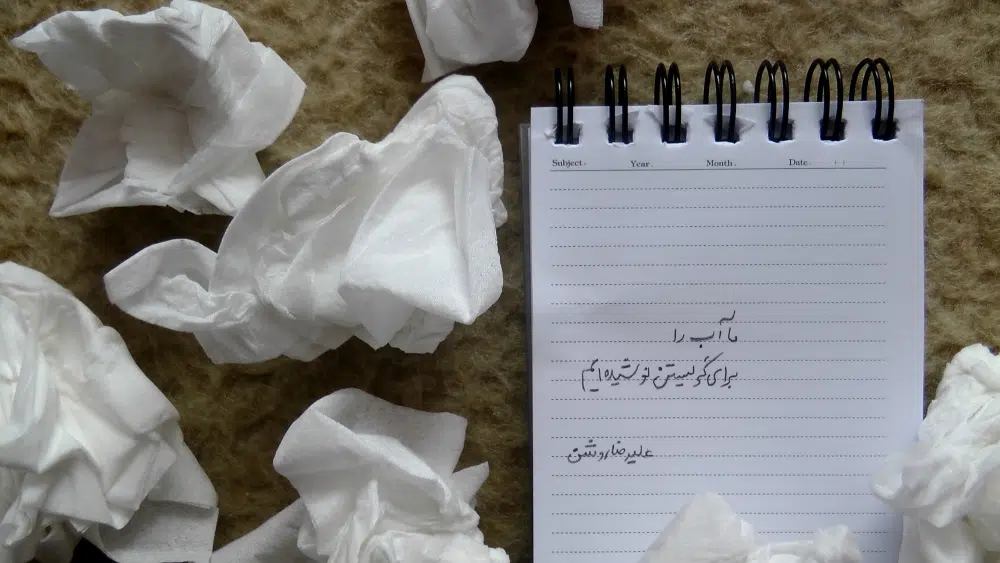 Subject. Year. Month. Date. ( )
ما آب را
برای گریستن نوشیده‌ایم
علیرضا روشن